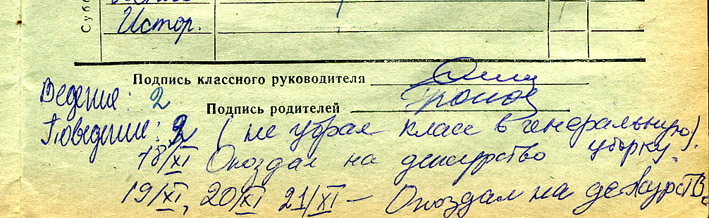 Субб
Истор.
Подпись классного руководителя
Ведение: 2
Подпись родителей
Поведение: 2 (не убрал класс в генеральную уборку).
18/XI Опоздал на дежурство
19/XI, 20/XI 21/XI – Опоздал на дежурств